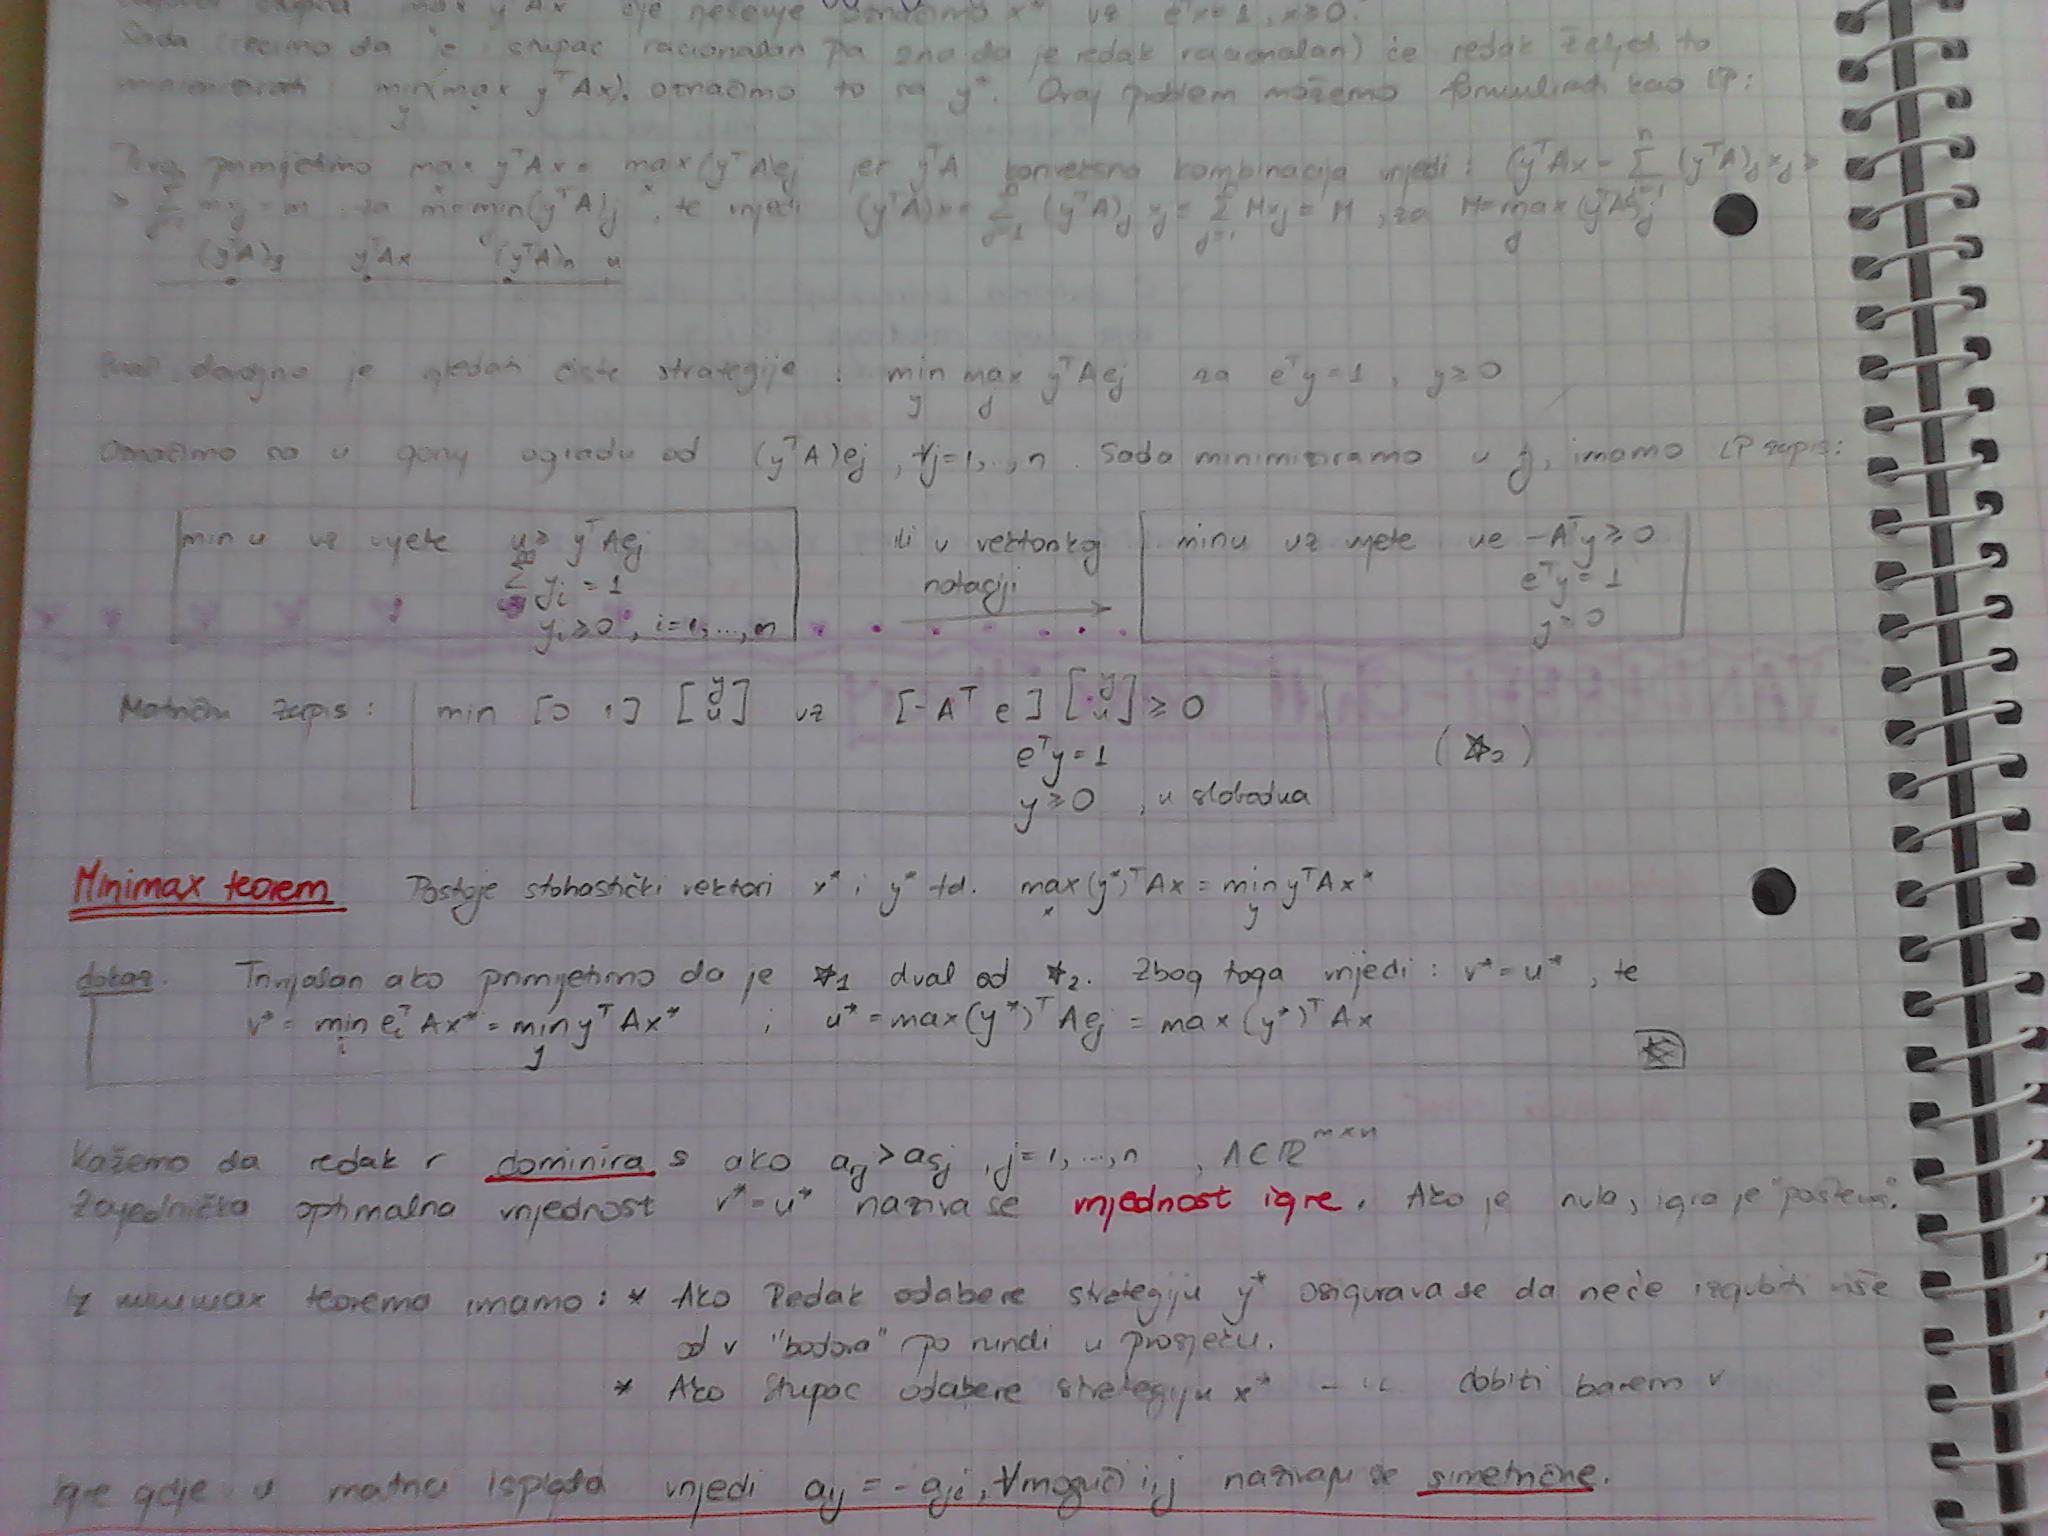 Sada (recimo da je i stupac racionalan pa zna da je redak racionalan) će redak željeti to
minimizirati: min(max yᵀAx). označimo to sa y*. Ovaj problem možemo formulirati kao LP:
primijetimo max yᵀAx = max (yᵀA)ej jer yᵀA konveksna kombinacija vrijedi: (yᵀAx = Σ (yᵀA)j xj ≥
≥ Σ mxj = m za m = min (yᵀA)j, te vrijedi (yᵀA)x = Σ (yᵀA)j xj = Σ Mxj = M, za M = max (yᵀA)j
(yᵀA)1 yᵀAx (yᵀA)n u
dovoljno je gledati čiste strategije: min max yᵀAej za eᵀy=1, y≥0
Označimo sa u gornju ogradu od (yᵀA)ej, ∀j=1,...,n. Sada minimiziramo u y, imamo LP zapis:
min u uz uvjete u ≥ yᵀAej ili u vektorskoj min u uz uvjete ue - Aᵀy ≥ 0
Σ yi = 1 notaciji eᵀy = 1
yi ≥ 0, i=1,...,m y ≥ 0
Matrični zapis: min [0 1] [y u] uz [-Aᵀ e] [y u] ≥ 0
eᵀy = 1 (☆₂)
y ≥ 0, u slobodna
Minimax teorem Postoje stohastički vektori x* i y* td. max (y*)ᵀAx = min yᵀAx*
dokaz. Trivijalan ako primijetimo da je ☆₁ dual od ☆₂. Zbog toga vrijedi: v* = u*, te
v* = min eiᵀAx* = min yᵀAx* i u* = max (y*)ᵀAej = max (y*)ᵀAx
Kažemo da redak r dominira s ako arj > asj, j=1,...,n, A∈ℝ^{m×n}
Zajednička optimalna vrijednost v* = u* naziva se vrijednost igre. Ako je nula, igra je "poštena".
Iz minimax teorema imamo: * Ako Redak odabere strategiju y* osigurava se da neće izgubiti više
od v "bodova" po rundi u prosjeku.
* Ako Stupac odabere strategiju x* -"- dobiti barem v
Igre gdje u matrici isplata vrijedi aij = -aji, ∀mogući i,j nazivaju se simetrične.